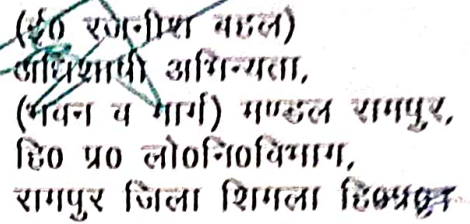 (ई० रजनीश बहल)
अधिशाषी अभियन्ता,
(भवन व मार्ग) मण्डल रामपुर,
हि० प्र० लो०नि०विभाग,
रामपुर जिला शिमला हि०प्र०